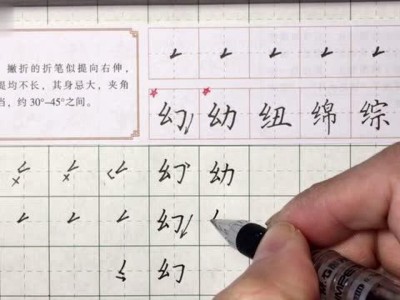 撇折的折笔似提向右伸,
提均不长,其身忌大,夹角
当,约30°–45°之间。
幻 幼 纽 绵 综
幻 幼
幻
幻